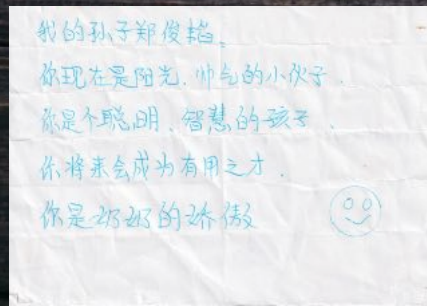 我的孙子郑俊韬。
你现在是阳光、帅气的小伙子.
你是个聪明、智慧的孩子.
你将来会成为有用之才.
你是奶奶的骄傲